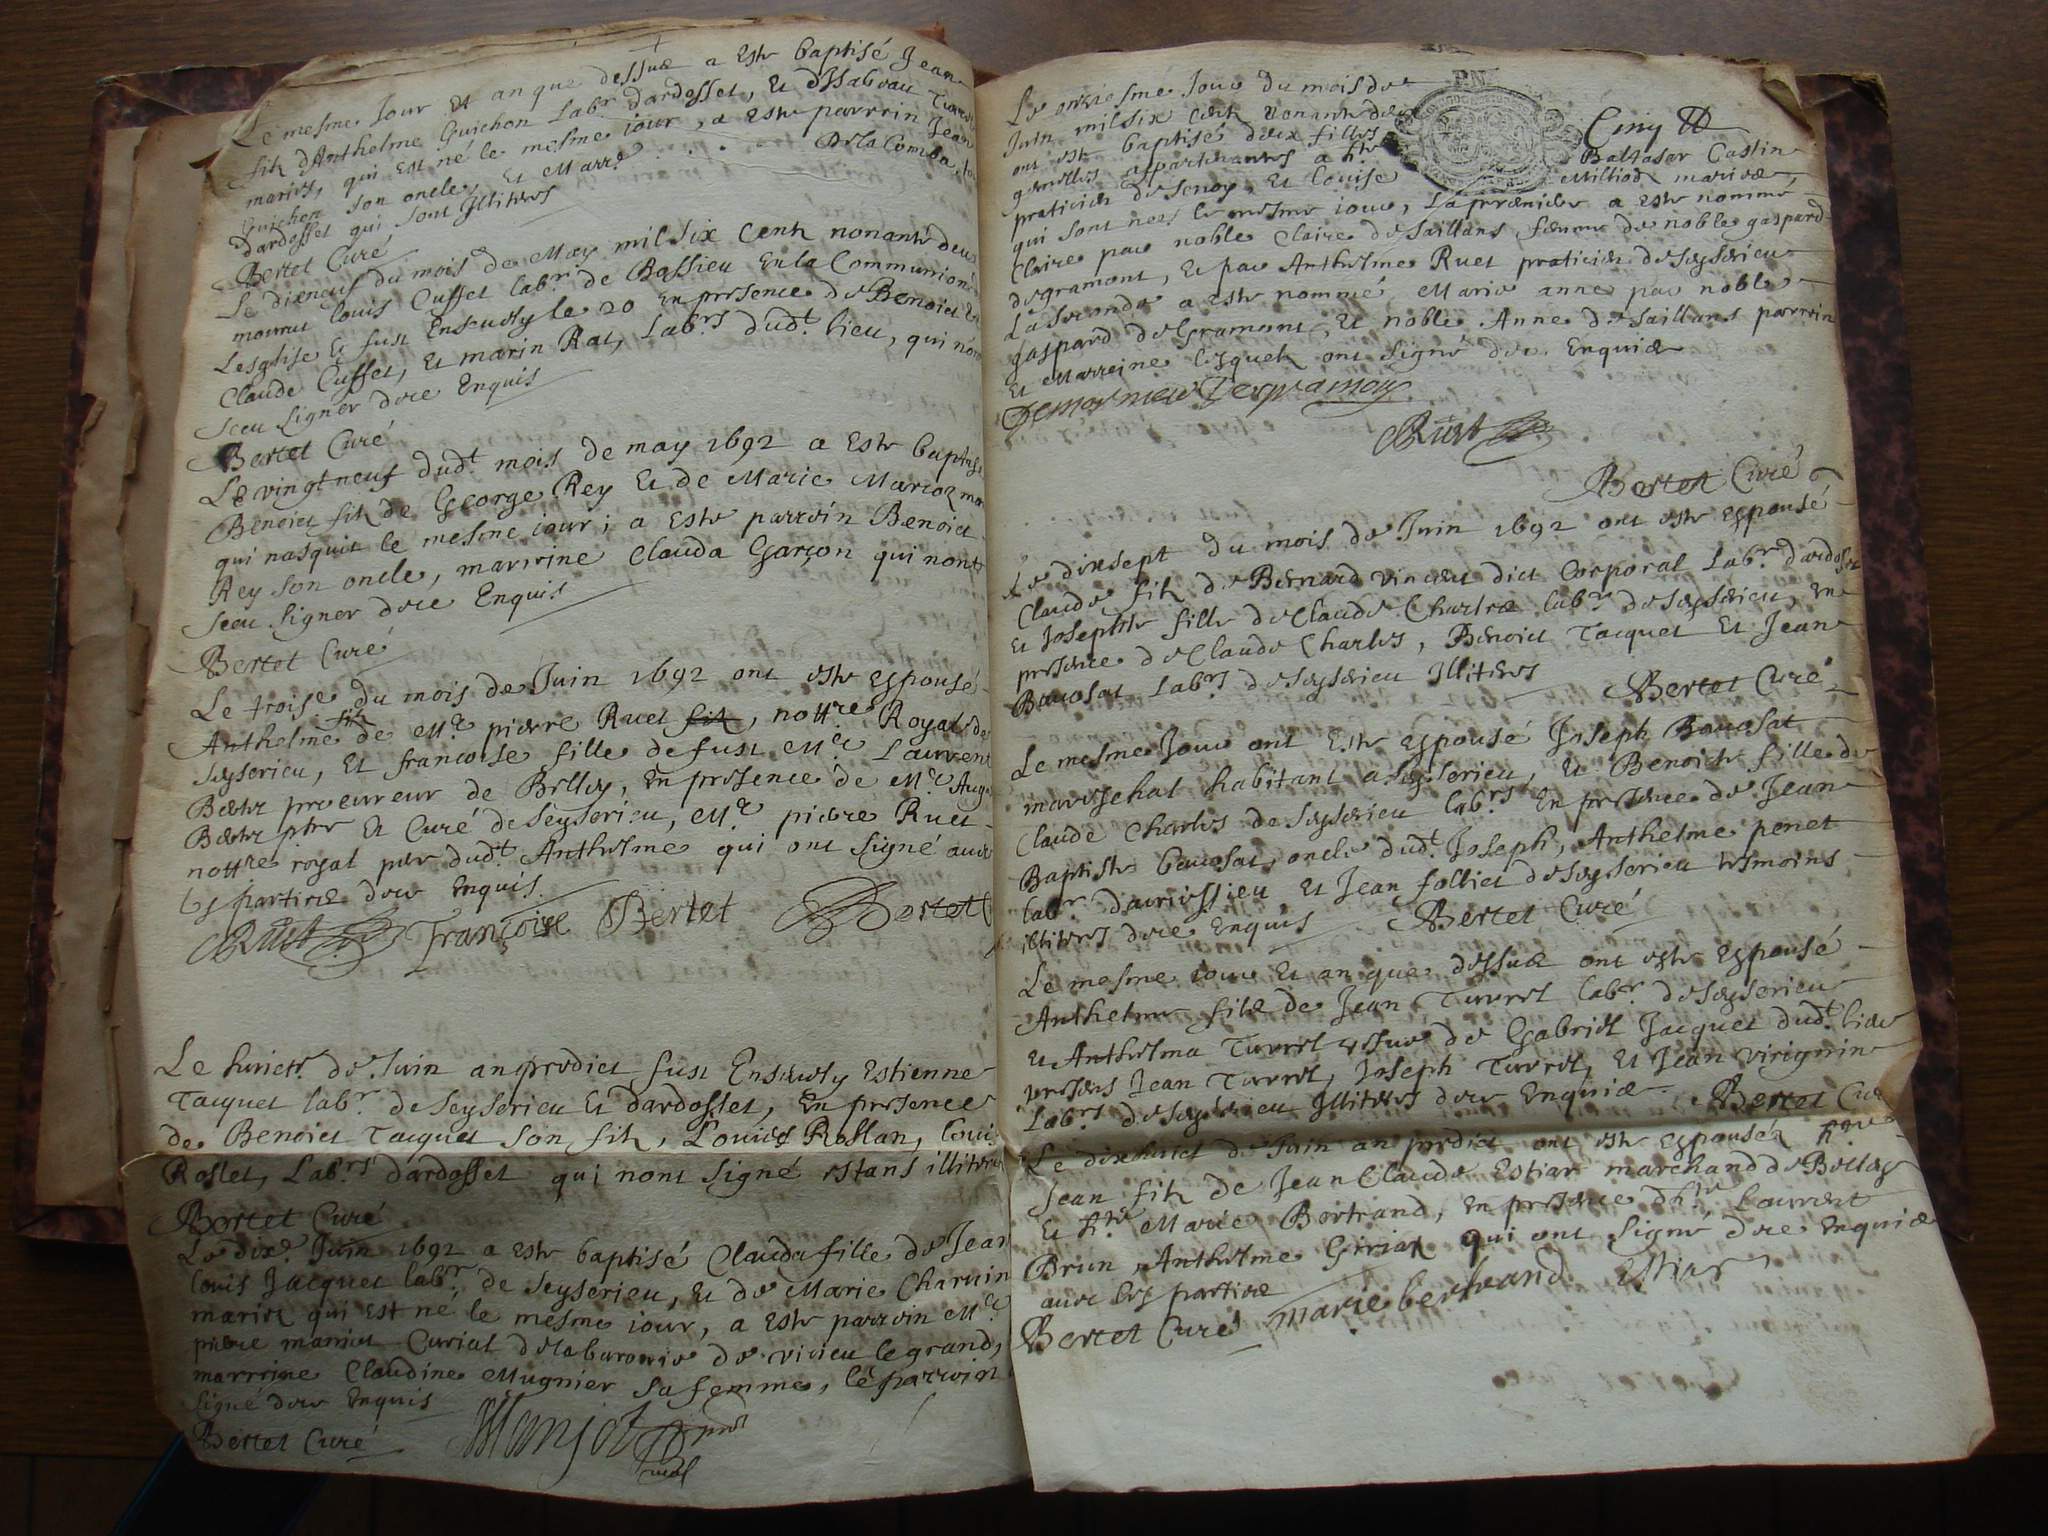 Le mesme Jour et an que dessus a este baptisé Jean
fils d'Anthelme Guichon lab.r dardosset, et d'Isabeau
mariés, qui est né le mesme jour, a este parrain Jean
Guichon son oncle, et Marr.e De la Comba
dardosset qui sont Illiteres
Bertet Curé
Le dixneuf du mois de May mil six cent nonante deux
mourut Louis Cusset lab.r de Bassieu En la Communion de
Lesglise et fust Ensevely le 20 en presence de Benoict et
Claude Cusset, et marin Rat, Lab.rs dud.t lieu, qui n'ont
sceu signer de ce Enquis
Bertet Curé
Le vingt neuf dud.t mois de may 1692 a este baptisé
Benoict fils de George Rey et de Marie Marioz
qui nasquit le mesme iour ; a este parrain Benoict
Rey son oncle, marrine Clauda Garçon qui nont
sceu signer de ce Enquis
Bertet Curé
Le trois.e du mois de Juin 1692 ont este espousé
Anthelme fils de M.e pierre Ruet fils, nott.re Royal de
Seyserieu, et francoise fille de fust M.e Laurent
Bertet procureur de Belley, en presence de M.e Aug.
Bertet ptre et Curé de Seyserieu, M.e pierre Ruet
nott.re royal pere dud.t Anthelme qui ont signé avec
les parties de ce enquis
Ruet Françoise Bertet Bertet
Le huict.e de Juin an predict fust Ensevely Estienne
Tacquet lab.r de Seyserieu et dardosset, en presence
de Benoict Tacquet son fils, Louis Rostan, Loui
Roslet, Lab.rs dardosset qui nont signé estans illiteres
Bertet Curé
Le dix.e Juin 1692 a este baptisé Clauda fille de Jean
Louis Jacquet lab.r de Seyserieu, et de Marie Charvin
mariez qui est né le mesme iour, a este parrain M.e
pierre maniet Curial de la baronie de virieu le grand,
marrine Claudine Mugnier sa femme, le parrain
signé de ce enquis
Bertet Curé Manjot
Le onziesme Jour du mois de
Juin mil six cent nonante deux
ont este baptisé deux filles
gemelles appartenantes a h.re Baltasar Castin
praticien de Senoy, et Louise Milliod mariés
qui sont nees le mesme iour, La premiere a este nommé
Claire par noble Claire de Saillans femme de noble gaspard
de gramont, et par Anthelme Ruet praticien de Seyserieu
La seconde a este nommé Marie anne par noble
gaspard de Gramont, et noble Anne de Saillans parrain
et Marreine lesquels ont signé de ce Enquis
Ruet
Bertet Curé
Le dixsept du mois de Juin 1692 ont este espousé
Claude fils de Bernard vincent dict Corporal Lab.r dardosset
et Josephte fille de Claude Charles lab.r de Seyserieu, en
presence de Claude Charles, Benoict Tacquet et Jean
Bavosat Lab.rs de Seyserieu Illiteres Bertet Curé
Le mesme Jour ont este espousé Joseph Bavosat
mareschal habitant a Seyserieu, et Benoicte fille de
Claude Charles de Seyserieu lab.rs en presence de Jean
Baptiste bavosat, oncle dud.t Joseph, Anthelme penet
lab.r et Jean folliet de Seyserieu tesmoins
illiteres de ce Enquis Bertet Curé
Le mesme iour et an que dessus ont este espousé
Anthelme fils de Jean Turrel lab.r de Seyserieu
et Anthelma Turrel vesve de Gabriel Jacquet dud.t lieu
presens Jean Turrel, Joseph Turrel, et Jean virignin
Lab.rs de Seyserieu Illiteres de ce enquis Bertet Curé
Le dixhuict de Juin an predict ont este espousés h.re
Jean fils de Jean Claude Estiar marchand de Belley
et h.te Marie Bertrand, en presence d'h.re Laurent
Brun, Anthelme Giriat qui ont signé de ce enquis
avec les parties
Bertet Curé marie bertrand Estiar